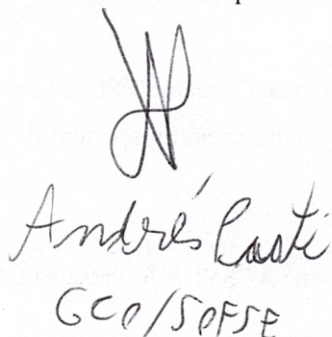 Andrés Casti
GCO/SOFSE